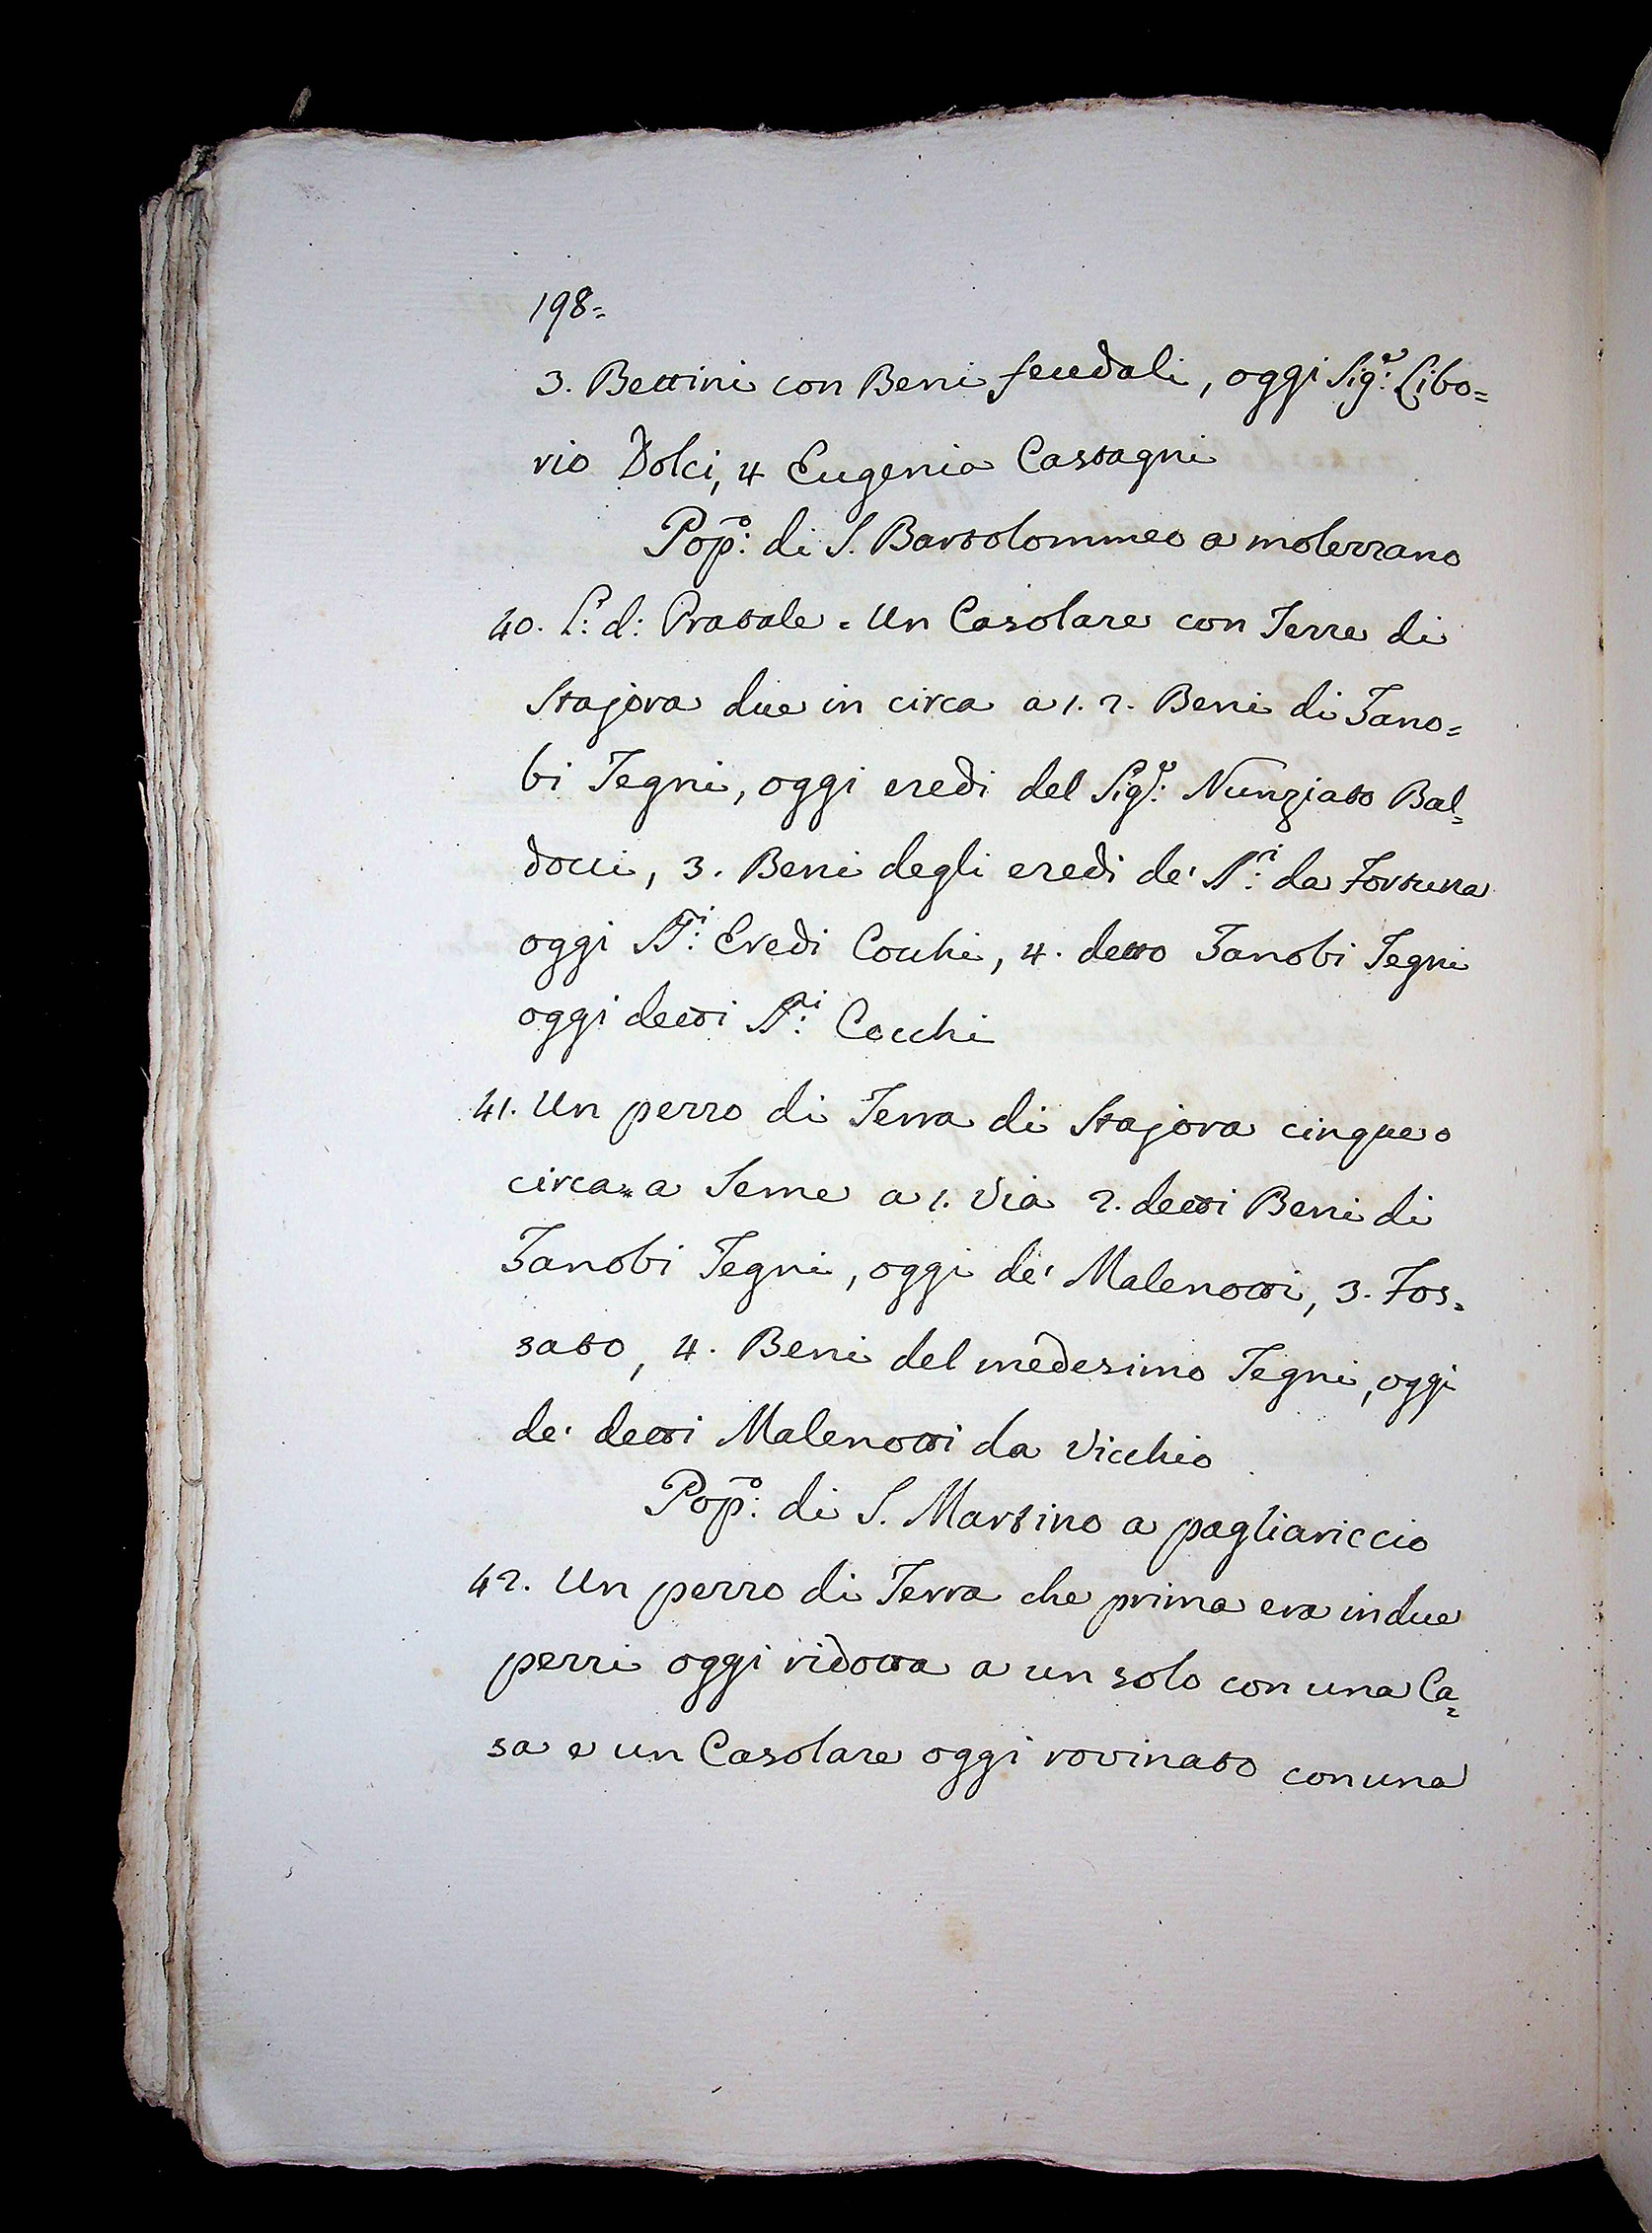 198=
3. Bettini con Beni feudali, oggi Sig.e Libo=
rio Dolci, 4 Eugenio Castagni
Pop.o: di S. Bartolommeo a molezzano
40. L: d: Pratale = Un Casolare con Terre di
Stajora due in circa a 1. 2. Beni di Zano=
bi Tegni, oggi eredi del Sig.e: Nunziato Bal=
docci, 3. Beni degli eredi de' SS.ri: da Fortuna
oggi SS.ri: Eredi Cocchi, 4. detto Zanobi Tegni
oggi detti SS.ri: Cocchi
41. Un pezzo di Terra di Stajora cinque o
circa = a Seme a 1. Via 2. detti Beni di
Zanobi Tegni, oggi de' Malenotti, 3. Fos=
sato, 4. Beni del medesimo Tegni, oggi
de' detti Malenotti da Vicchio
Pop.o: di S. Martino a pagliariccio
42. Un pezzo di Terra che prima era in due
pezzi oggi ridotta a un solo con una Ca=
sa e un Casolare oggi rovinato con una